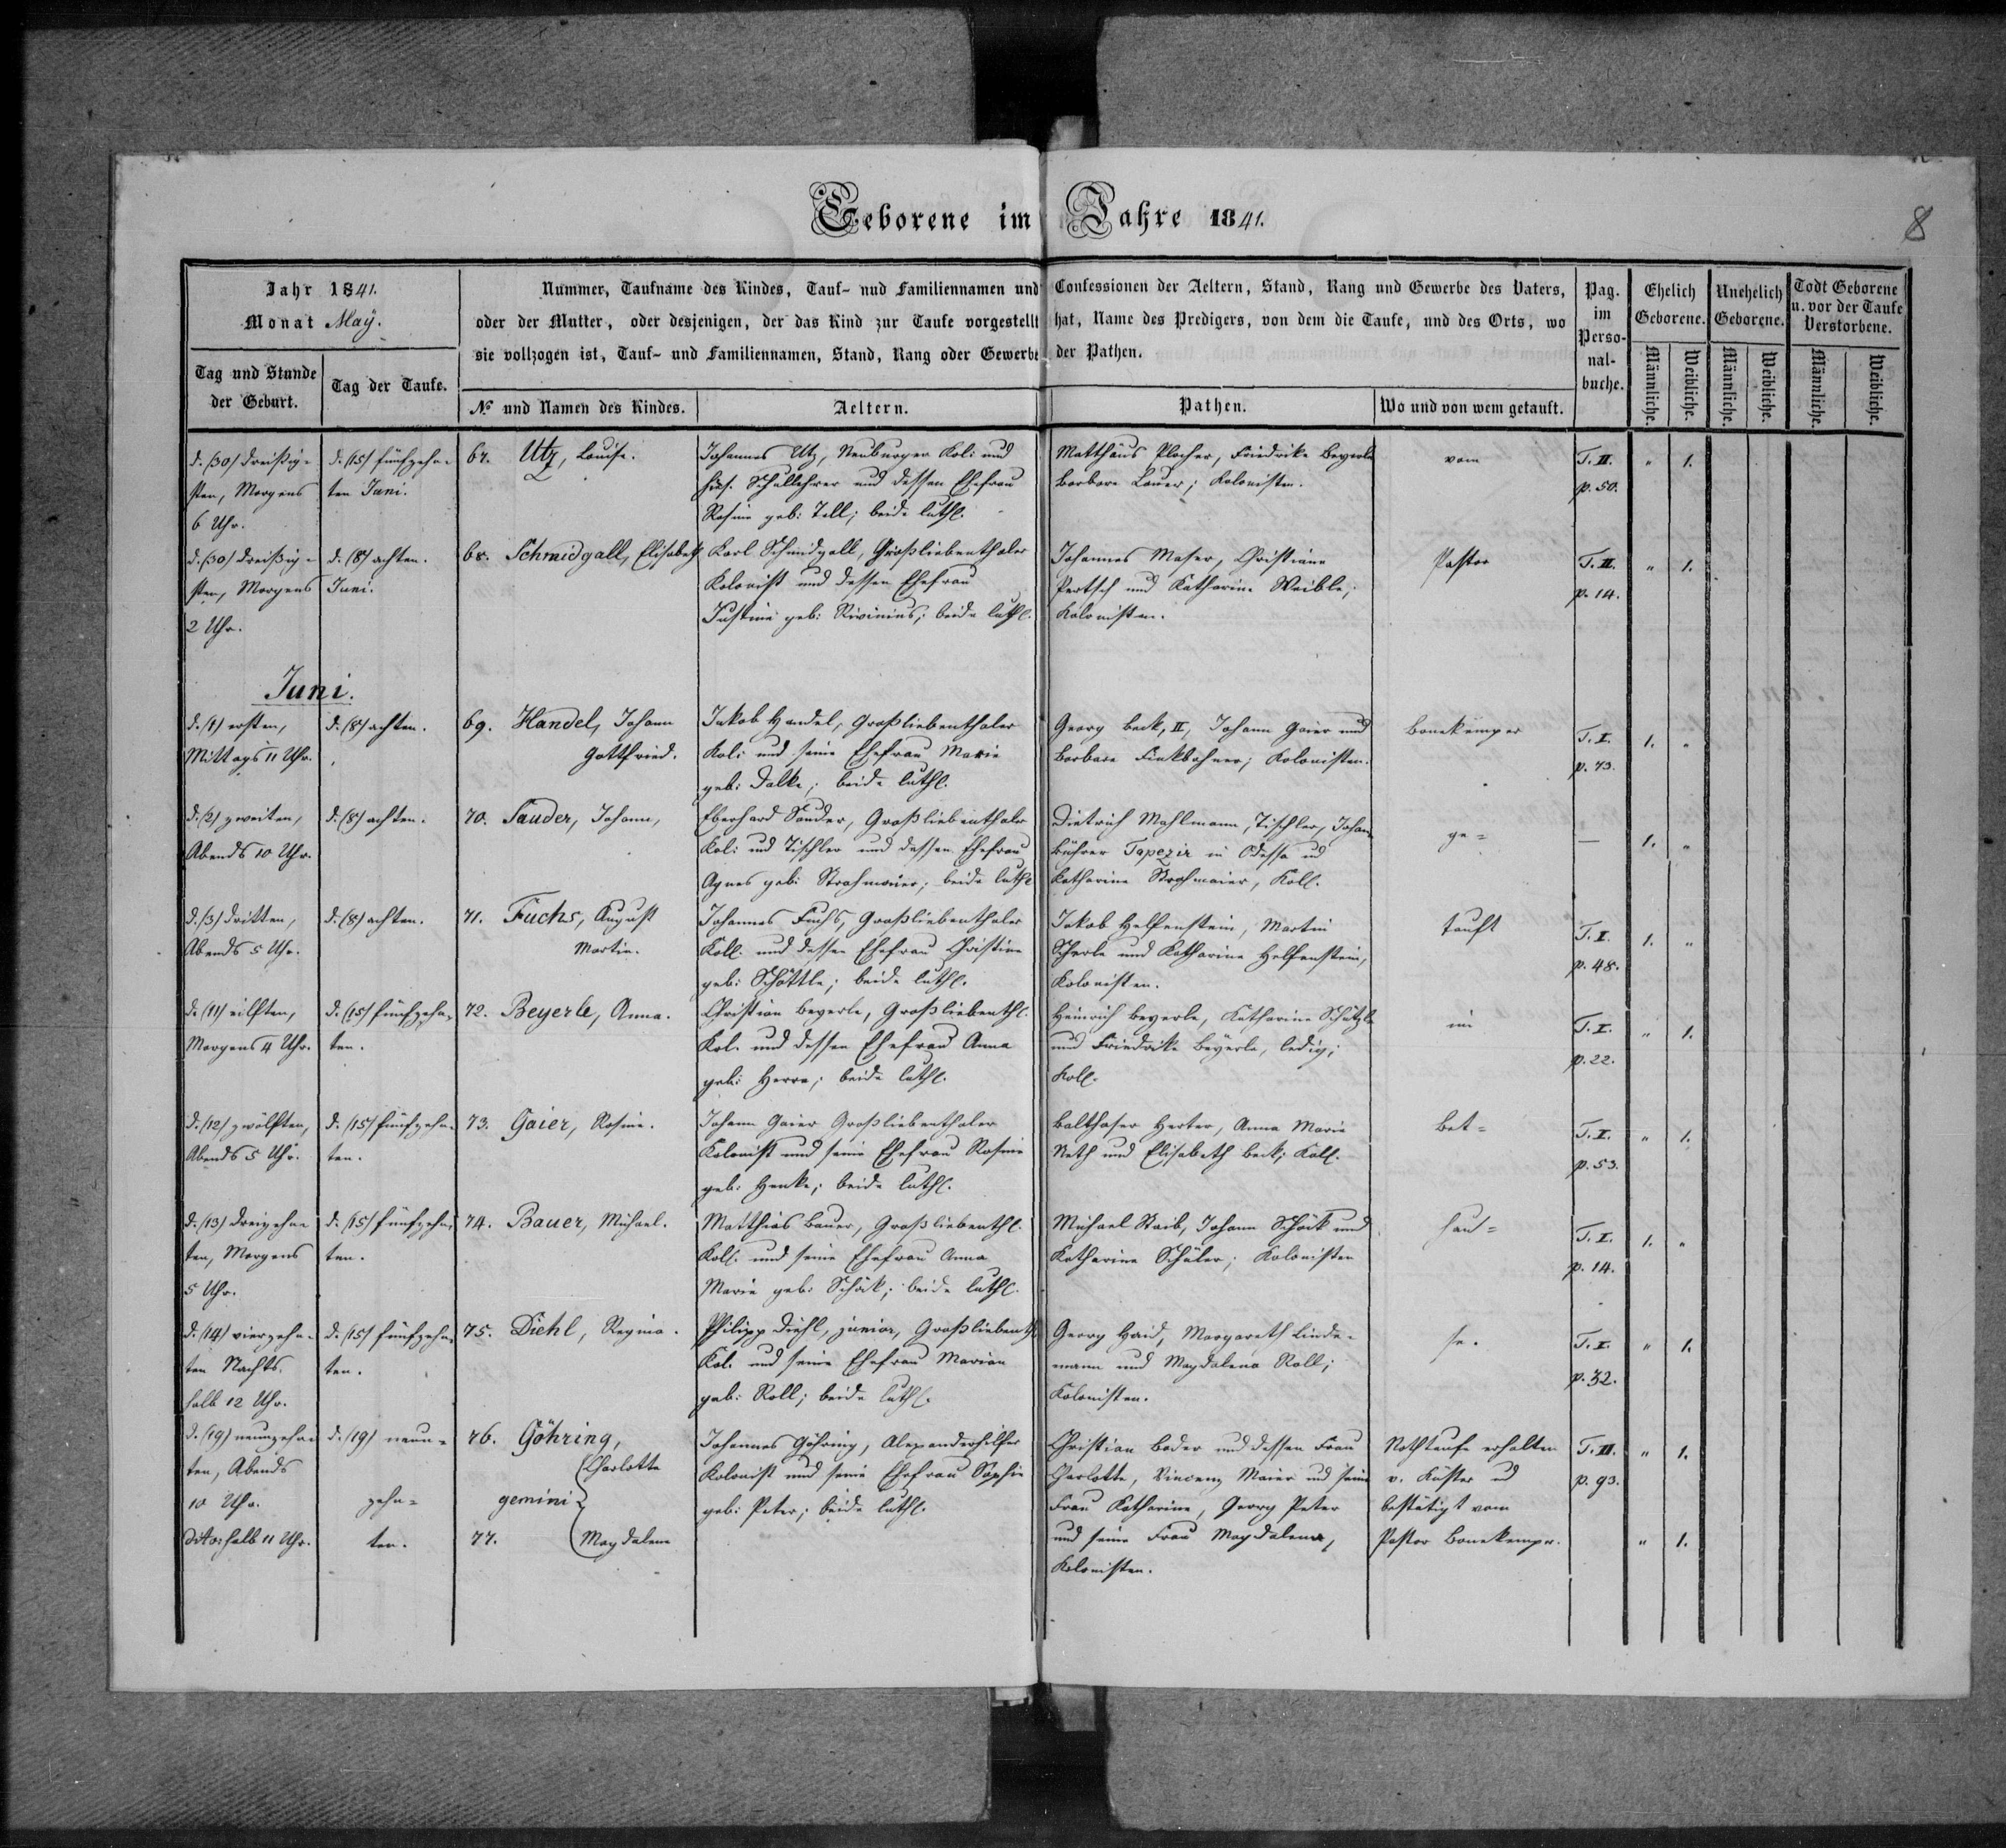 Geborene im Jahre 1841.
8
Jahr 1841.
Monat Maÿ.
Tag und Stunde der Geburt.
Tag der Taufe.
Nummer, Taufname des Kindes, Tauf- und Familiennamen und Confessionen der Aeltern, Stand, Rang und Gewerbe des Vaters,
oder der Mutter, oder desjenigen, der das Kind zur Taufe vorgestellt hat, Name des Predigers, von dem die Taufe, und des Orts, wo
sie vollzogen ist, Tauf- und Familiennamen, Stand, Rang oder Gewerbe der Pathen.
No und Namen des Kindes.
Aeltern.
Pathen.
Wo und von wem getauft.
Pag. im Perso-nal-buche.
Ehelich Geborene.
Unehelich Geborene.
Todt Geborene u. vor der Taufe Verstorbene.
Männliche. Weibliche. Männliche. Weibliche. Männliche. Weibliche.
d. (30) dreißig-
sten, Morgens
6 Uhr.
d. (15) fünfzehn-
ten Juni.
67. Utz, Louise.
Johannes Utz, Neuburger Kol: und
hies. Schullehrer und dessen Ehefrau
Rosine geb: Tell; beide luth.
Matthäus Plocher, Friedrike Beyerle
Barbara Lauer; Kolonisten.
vom
T. II.
p. 50.
" 1.
d. (30) dreißig-
sten, Morgens
2 Uhr.
d. (8) achten.
Juni.
68. Schmidgall, Elisabeth
Karl Schmidgall, Großliebenthaler
Kolonist und dessen Ehefrau
Justine geb: Rivinius; beide luth.
Johannes Maser, Christiane
Pertsch und Katharine Weible;
Kolonisten.
Pastor
T. II.
p. 14.
" 1.
Juni.
d. (1) ersten,
Mittags 11 Uhr.
d. (8) achten.
69. Handel, Johann
Gottfried.
Jakob Handel, Großliebenthaler
Kol: und seine Ehefrau Marie
geb: Dalke; beide luth.
Georg Beck, II, Johann Gaier und
Barbara Finkbohner; Kolonisten.
Bonekemper
T. I.
p. 73.
1. "
d. (2) zweiten,
Abends 10 Uhr.
d. (8) achten.
70. Sauder, Johann,
Eberhard Sauder, Großliebenthaler
Kol: und Tischler und dessen Ehefrau
Agnes geb: Strohmaier; beide luth
Dietrich Mahlmann, Tischler, Johann
Bührer Tapezir in Odessa ud
Katharine Strohmaier, Koll.
ge=
—
1. "
d. (3) dritten,
Abends 5 Uhr.
d. (8) achten.
71. Fuchs, August
Martin.
Johannes Fuchs, Großliebenthaler
Koll. und dessen Ehefrau Christine
geb: Schöttle; beide luth.
Jakob Helfenstein, Martin
Scherle und Katharine Helfenstein,
Kolonisten.
tauft
T. I.
p. 48.
1. "
d. (11) eilften,
Morgens 4 Uhr.
d. (15) fünfzehn-
ten.
72. Beyerle, Anna.
Christian Beyerle, Großliebenth.
Kol. und dessen Ehefrau Anna
geb: Herre; beide luth.
Heinrich Beyerle, Katharine Schützle
und Friedrike Beyerle, ledig;
Koll.
im
T. I.
p. 22.
" 1.
d. (12) zwölften,
Abends 5 Uhr.
d. (15) fünfzehn-
ten.
73. Gaier, Rosine.
Johann Gaier Großliebenthaler
Kolonist und seine Ehefrau Rosine
geb: Henke; beide luth.
Balthaser Herter, Anna Marie
Neth und Elisabeth Beck; Koll.
Bet=
T. I.
p. 53.
" 1.
d. (13) dreizehn-
ten, Morgens
5 Uhr.
d. (15) fünfzehn-
ten.
74. Bauer, Michael.
Matthias Bauer, Großliebenth.
Koll. und seine Ehefrau Anna
Marie geb: Schöck; beide luth.
Michael Staib, Johann Schöck und
Katharine Schüler; Kolonisten
hau=
T. I.
p. 14.
1. "
d. (14) vierzehn-
ten Nachts.
halb 12 Uhr.
d. (15) fünfzehn-
ten.
75. Diehl, Regina.
Philipp Diehl, junior, Großliebenth.
Kol. und seine Ehefrau Mariane
geb: Roll; beide luth.
Georg Haid, Margareth Linde-
mann und Magdalena Roll;
Kolonisten.
se.
T. I.
p. 32.
" 1.
d. (19) neunzehn-
ten, Abends
10 Uhr.
dito: halb 11 Uhr.
d. (19) neun-
zehn-
ten.
76. Göhring,
Charlotte
gemini
77. Magdalene
Johannes Göhring, Alexanderhilfer
Kolonist und seine Ehefrau Sophie
geb: Peter; beide luth.
Christian Bader und dessen Frau
Charlotte, Vincenz Maier und seine
Frau Katharine, Georg Peter
und seine Frau Magdalena,
Kolonisten.
Nothtaufe erhalten
v. Küster ud
bestätigt vom
Pastor Bonekemper.
T. III.
p. 93.
" 1.
" 1.